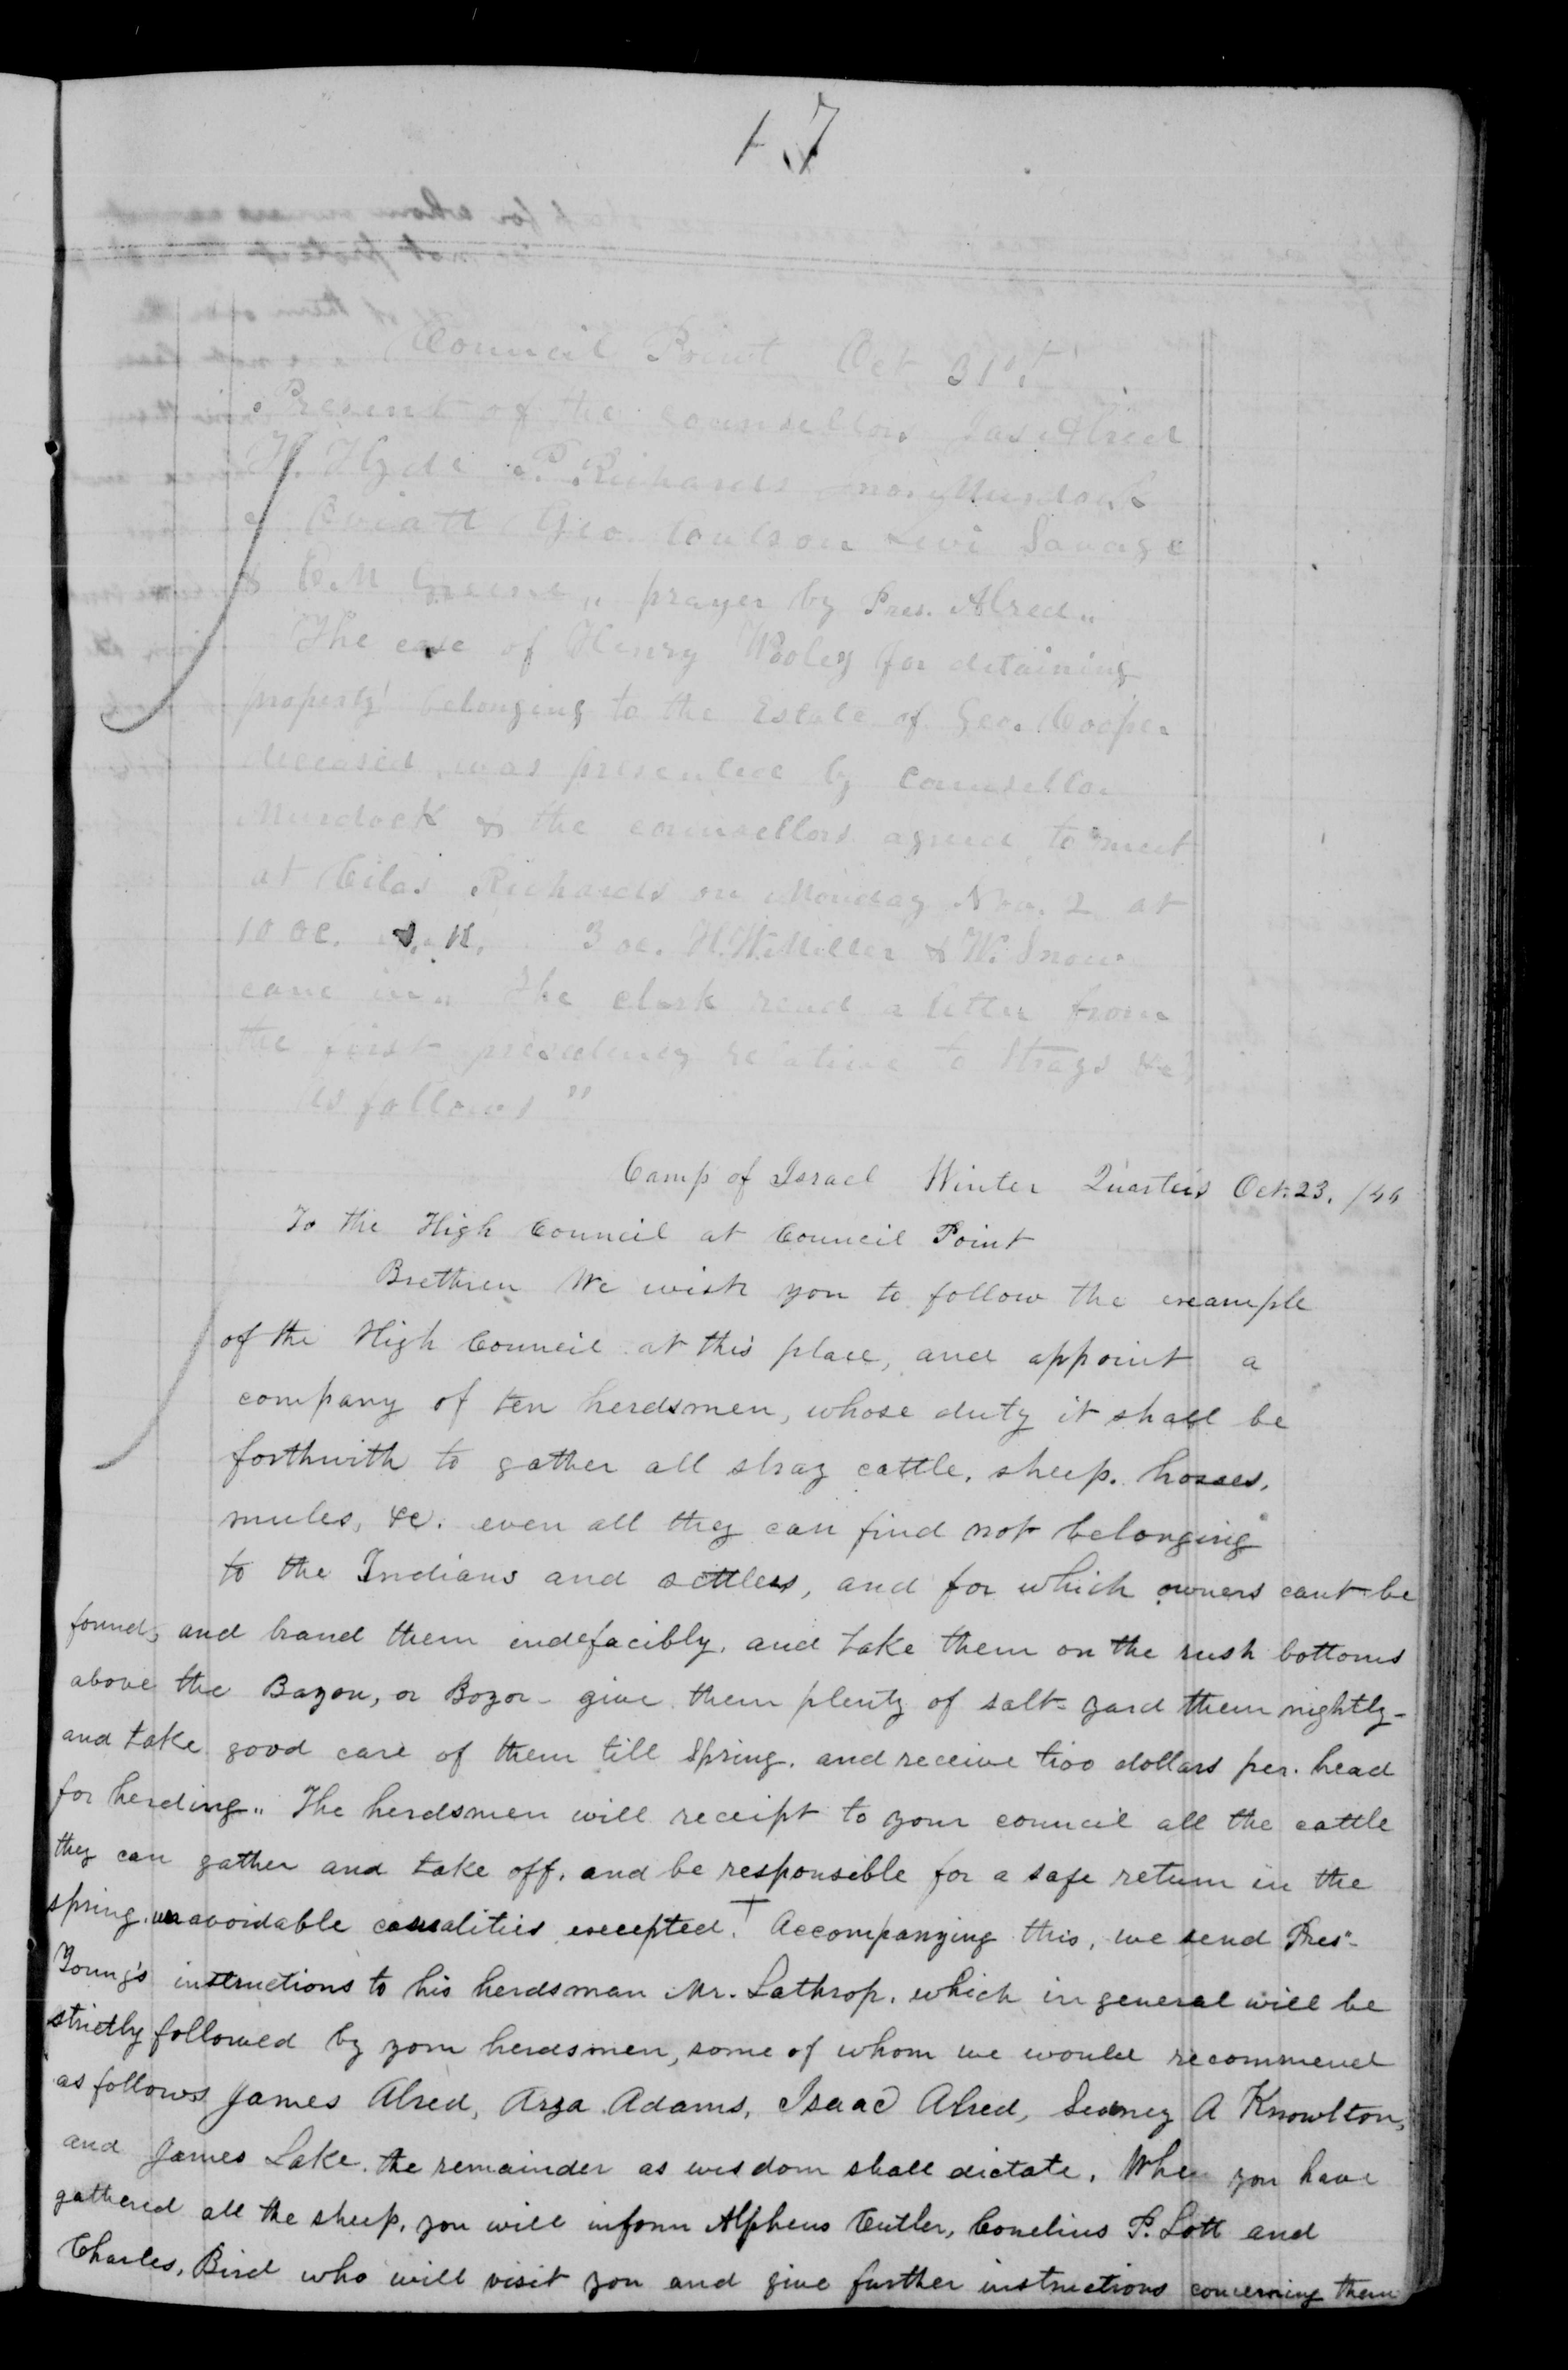 17
Council Point Oct 31st
Present of the counsellors Jas. Alred
H. Hyde P. Richards Jno. Murdock
Eviatt Geo. Coulson Levi Savage
& E. M Greene " prayer by Pres. Alred "
The case of Henry Wooley for detaining
property belonging to the Estate of Geo. Cooper
deceased, was presented by Counsellor
Murdock & the counsellors agreed to meet
at Cilas Richards on Monday Nov. 2 at
10 oc. 3 oc. H. W. Miller & W. Snow
came in " The clerk read a letter from
the first presidency relative to Strays &c
as follows "
Camp of Israel Winter Quarters Oct. 23. /46
To the High Council at Council Point
Brethren We wish you to follow the example
of the High Council at this place, and appoint a
company of ten herdsmen, whose duty it shall be
forthwith to gather all stray cattle, sheep. horses,
mules, &c. even all they can find not belonging
to the Indians and settlers, and for which owners cant be
found, and brand them indefacibly, and take them on the rush bottoms
above the Bayou, or Boyor - give them plenty of salt - yard them nightly -
and take good care of them till Spring. and receive two dollars per. head
for herding " The herdsmen will receipt to your council all the cattle
they can gather and take off, and be responsible for a safe return in the
spring, unavoidable casualities excepted. + Accompanying this, we send Pres -
Young's instructions to his herdsman Mr. Lathrop. which in general will be
strictly followed by your herdsmen, some of whom we would recommend
as follows James Alred, Arza Adams, Isaac Alred, Sidney A Knowlton,
and James Lake. the remainder as wisdom shall dictate. When you have
gathered all the sheep, you will inform Alpheus Cutler, Conelius P. Lott and
Charles, Bird who will visit you and give further instructions concerning them